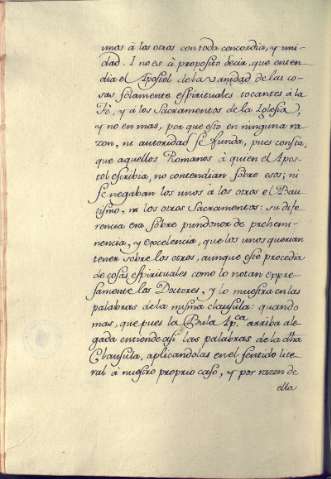 unos à los otros con toda concordia, y uni-
dad. I no es à proposito decir, que enten-
dia el Apostol de la Vanidad de las co-
sas solamente espirituales tocantes à la
Fè, y à los Sacramentos de la Iglesia,
y no en mas, por que esto en ninguna ra-
zon, ni autoridad se funda, pues consta,
que aquellos Romanos à quien el Apos-
tol escribia, no contendian sobre esos; ni
se negaban los unos à los otros el Bau-
tismo, ni los otros Sacramentos: su dife-
rencia era sobre pundonor de prehemi-
nencia, y Excelencia, que los unos querian
tener sobre los otros, aunque esto procedia
de cosas espirituales como lo notan expre-
samente los Doctores, y lo muestran en las
palabras de la misma clausula: quando
mas, que pues la Bula Ap.ca arriba ale-
gada entiende asi las palabras de la dha
Clausula, aplicandolas en el sentido lite-
ral à nuestro proprio caso, y por razon de
ella